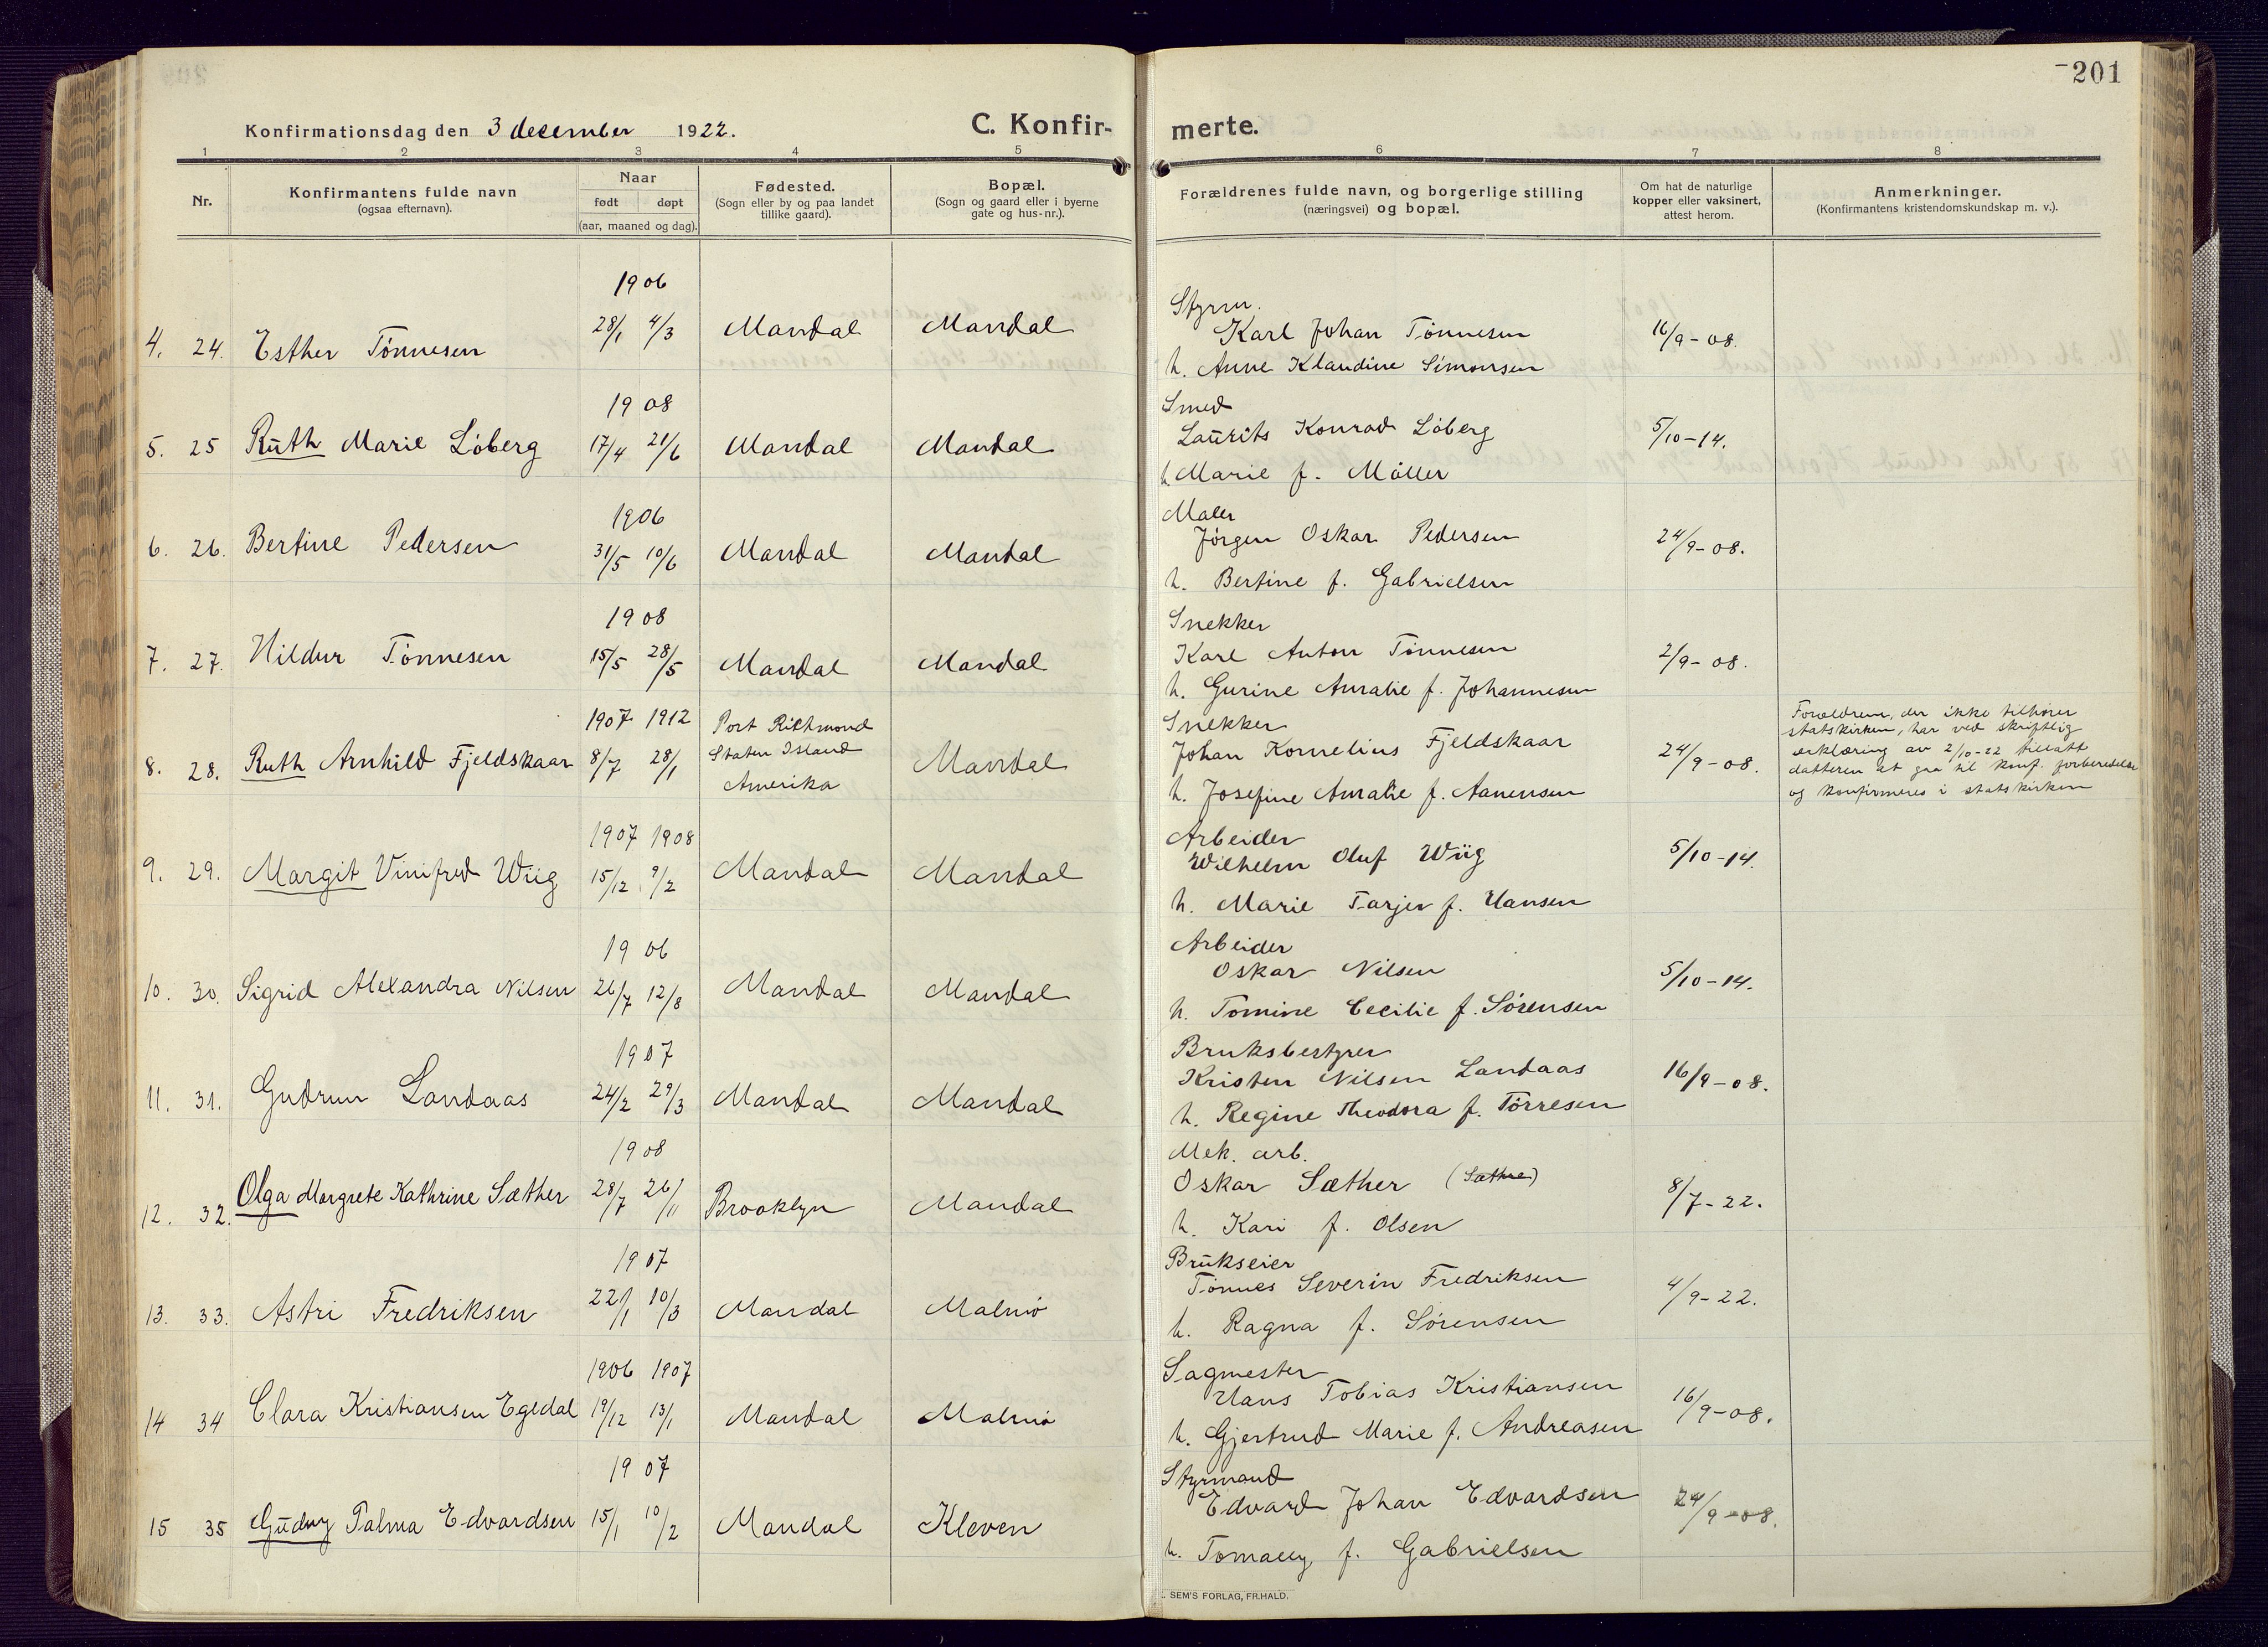 201
Konfirmationsdag den 3 december 1922.
C. Konfir-
merte.
1 2 3 4 5 6 7 8
Nr.
Konfirmantens fulde navn
(ogsaa efternavn).
Naar
født døpt
(aar, maaned og dag).
Fødested.
(Sogn eller by og paa landet
tillike gaard).
Bopæl.
(Sogn og gaard eller i byerne
gate og hus-nr.).
Forældrenes fulde navn, og borgerlige stilling
(næringsvei) og bopæl.
Om hat de naturlige
kopper eller vaksinert,
attest herom.
Anmerkninger.
(Konfirmantens kristendomskundskap m. v.).
1906
4. 24. Esther Tönnesen 28/1 4/3 Mandal Mandal
Styrm.
Karl Johan Tönnesen 16/9-08.
h. Anne Klaudine Simonsen
1908
5. 25 Ruth Marie Löberg 17/4 21/6 Mandal Mandal
Smed
Laurits Konrad Löberg 5/10-14.
h. Marie f. Möller
1906
6. 26. Bertine Pedersen 31/5 10/6 Mandal Mandal
Maler
Jörgen Oskar Pedersen 24/9-08.
h. Bertine f. Gabrielsen
1908
7. 27. Hildur Tönnesen 15/5 28/5 Mandal Mandal
Snekker
Karl Anton Tönnesen 2/9-08.
h. Gurine Amalie f. Johannesen
1907 1912
8. 28. Ruth Arnhild Fjeldskaar 8/7 28/1
Port Richmond
Staten Island
Amerika
Mandal
Snekker
Johan Kornelius Fjeldskaar 24/9-08.
h. Josefine Amalie f. Aanensen
Forældrene, der ikke tilhører
statskirken, har ved skriftlig
erklæring av 2/10-22 tillatt
datteren at gaa til konf. forberedelse
og konfirmeres i statskirken
1907 1908
9. 29. Margit Vinifred Wiig 15/12 9/2 Mandal Mandal
Arbeider
Wilhelm Oluf Wiig 5/10-14.
h. Marie Tarjer f. Hansen
1906
10. 30. Sigrid Alexandra Nilsen 26/7 12/8 Mandal Mandal
Arbeider
Oskar Nilsen 5/10-14.
h. Tomine Cecilie f. Sörensen
1907
11. 31. Gudrun Landaas 24/2 29/3 Mandal Mandal
Bruksbestyrer
Kristen Nilsen Landaas 16/9-08.
h. Regine Theodora f. Törresen
1908
12. 32. Olga Margrete Kathrine Sæther 28/7 26/11 Brooklyn Mandal
Mek. arb.
Oskar Sæther (Sæthre) 8/7-22.
h. Kari f. Olsen
1907
13. 33. Astri Fredriksen 22/1 10/3 Mandal Malmö
Brukseier
Tönnes Severin Fredriksen 4/9-22.
h. Ragna f. Sörensen
1906 1907
14 34 Clara Kristiansen Egedal 19/12 13/1 Mandal Malmö
Sagmester
Hans Tobias Kristiansen 16/9-08.
h. Gjertrud Marie f. Andreasen
1907
15 35 Gudny Palma Edvardsen 15/1 10/2 Mandal Kleven
Styrmand
Edvard Johan Edvardsen 24/9-08.
h. Tomaty f. Gabrielsen
SEM'S FORLAG, FR.HALD.